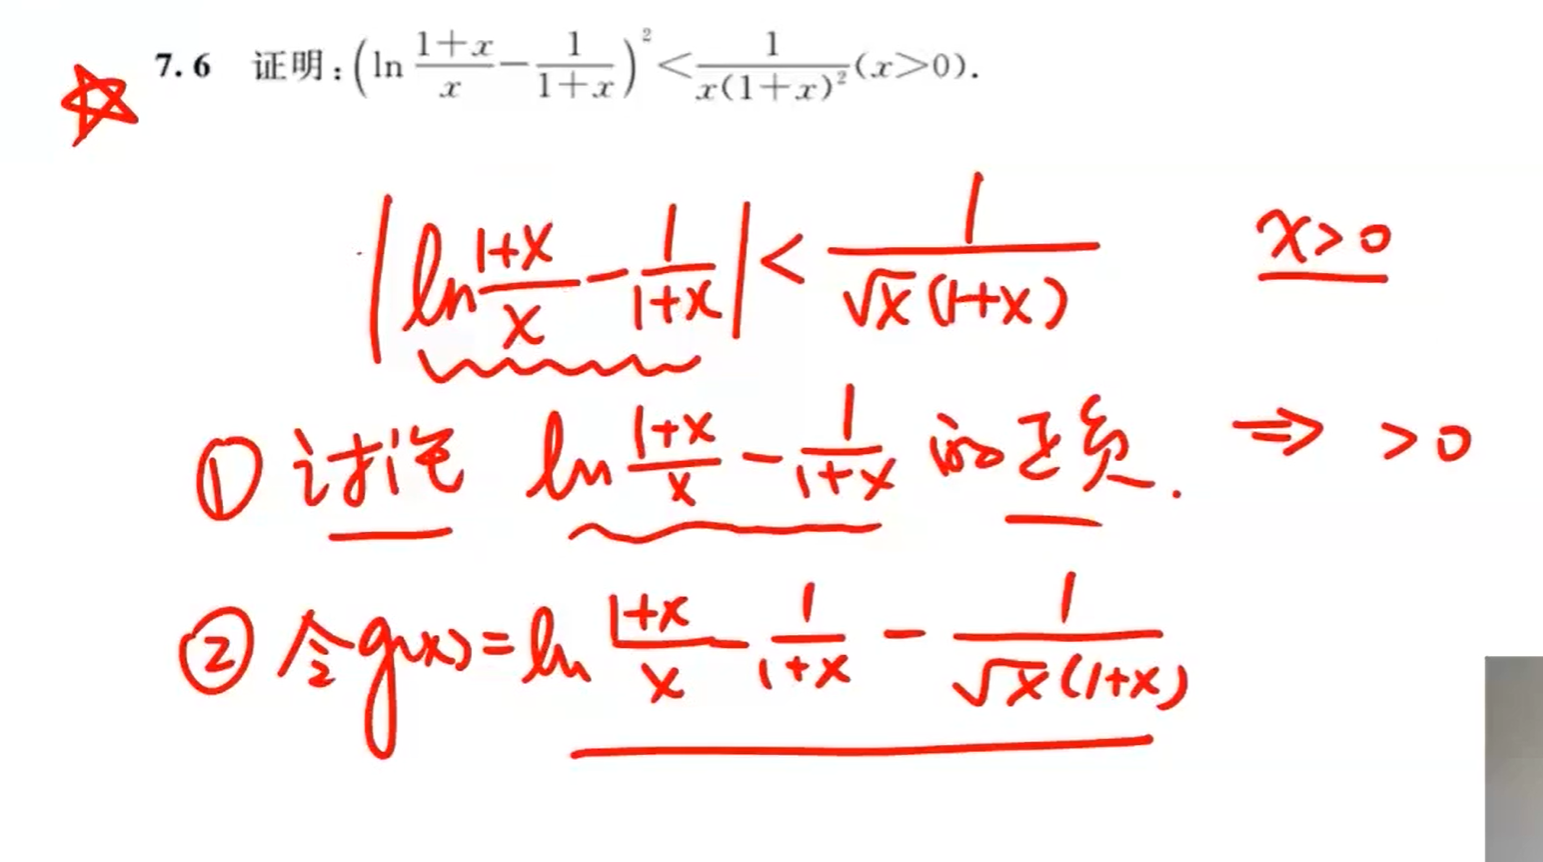 7.6 证明:(ln (1+x)/x - 1/(1+x))² < 1/(x(1+x)²) (x>0).
|ln (1+x)/x - 1/(1+x)| < 1/(√x(1+x)) x>0
① 讨论 ln (1+x)/x - 1/(1+x) 的正负. ⇒ >0
② 令g(x)=ln (1+x)/x - 1/(1+x) - 1/(√x(1+x))